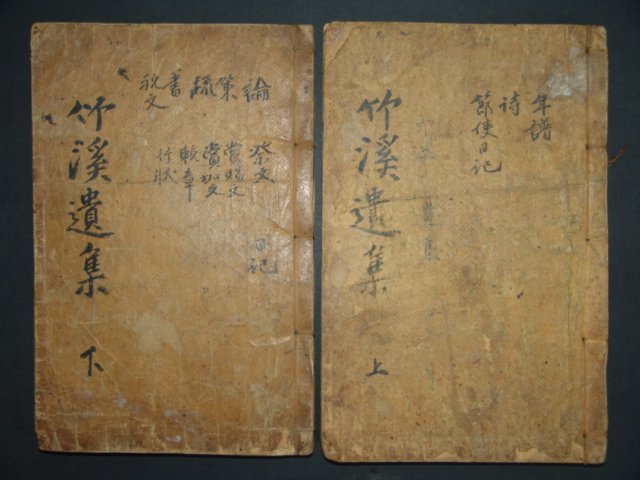 年譜
詩
節使日記
竹溪遺集
上
論
策
疏
書
祝文
祭文
輓章
行狀
日記
竹溪遺集
下